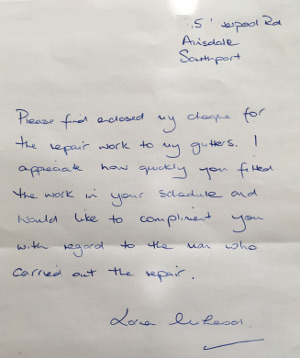 Rd
Ainsdale
Southport
Please find enclosed my cheque for
the repair work to my gutters. I
appreciate how quickly you fitted
the work in your schedule and
would like to compliment you
with regard to the man who
carried out the repair.